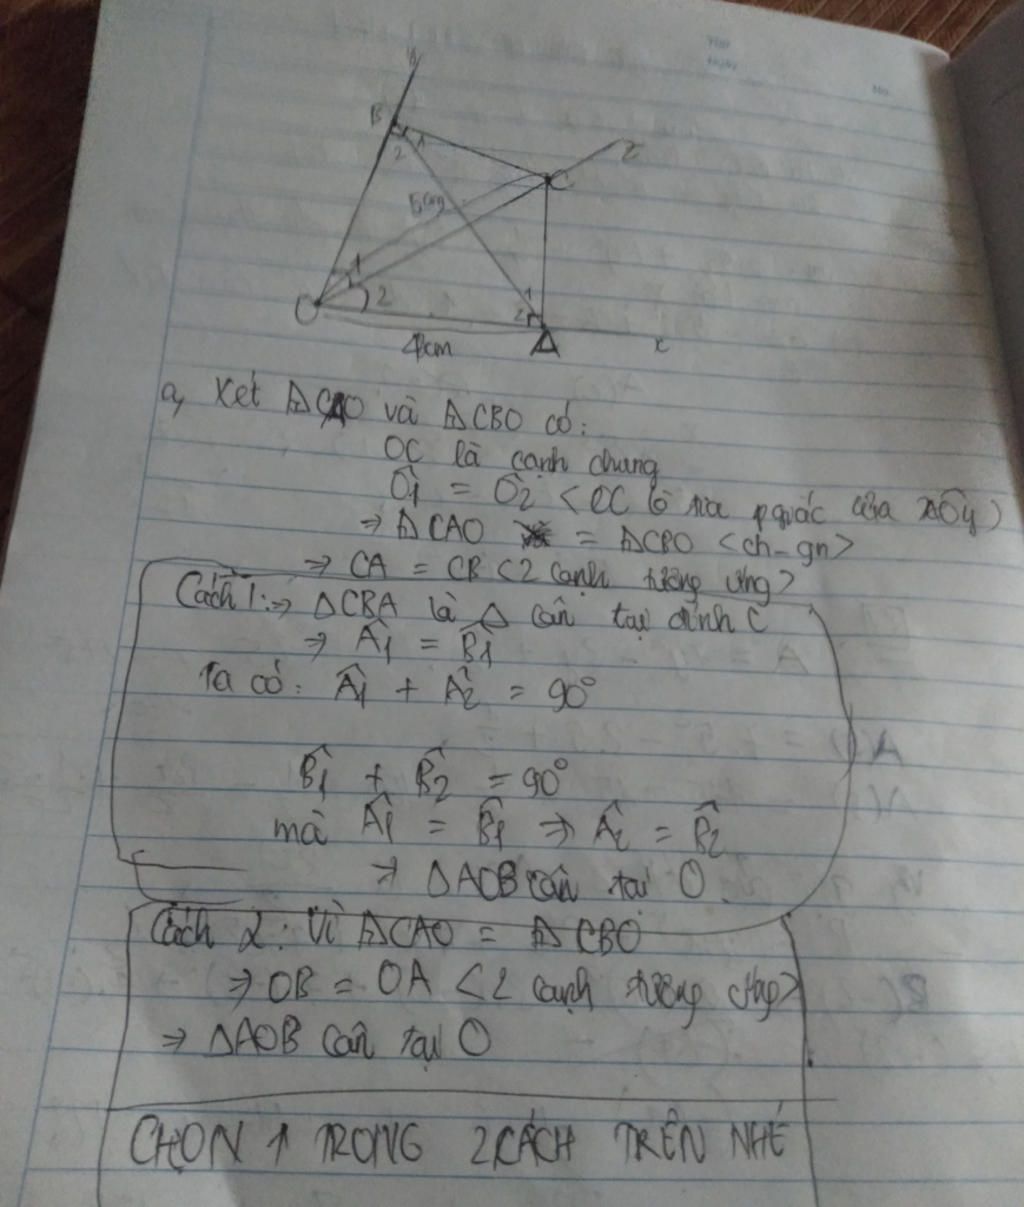 y
B
1
2
z
C
5cm
1
2
1
2
O
A
x
4cm
a, Xét ⊿CAO và ⊿CBO có:
OC là cạnh chung
Ô1 = Ô2 <OC là tia pgiác của xÔy)
⇒ ⊿CAO = ⊿CBO <ch-gn>
⇒ CA = CB <2 cạnh tương ứng>
Cách 1: ⇒ ΔCBA là Δ cân tại đỉnh C
⇒ Â1 = B̂1
Ta có: Â1 + Â2 = 90°
B̂1 + B̂2 = 90°
mà Â1 = B̂1 ⇒ Â2 = B̂2
⇒ ΔAOB cân tại O
Cách 2: Vì ⊿CAO = ⊿CBO
⇒ OB = OA <2 cạnh tương ứng>
⇒ ΔAOB cân tại O
CHỌN 1 TRONG 2 CÁCH TRÊN NHÉ